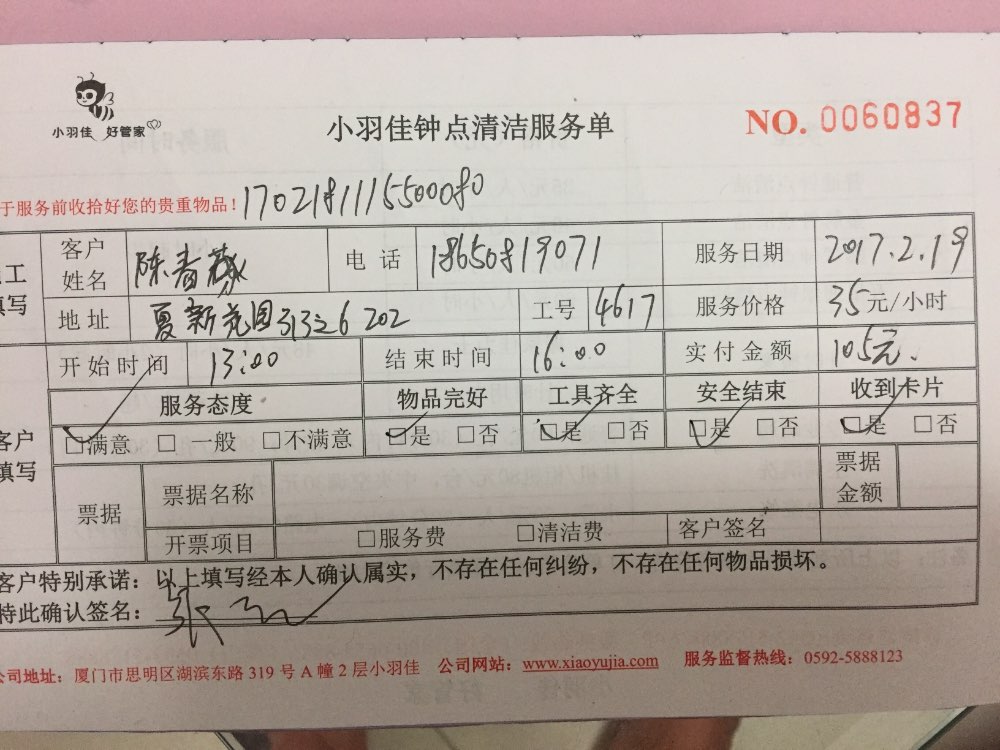 小羽佳 好管家
小羽佳钟点清洁服务单
NO. 0060837
于服务前收拾好您的贵重物品！17021811155500080
工
填写
客户姓名 陈春 电话 18650819071 服务日期 2017.2.19
地址 夏新花园313之6 202 工号 4617 服务价格 35元/小时
客户
填写
开始时间 13:00 结束时间 16:00 实付金额 105元.
服务态度 物品完好 工具齐全 安全结束 收到卡片
☑满意 □一般 □不满意 ☑是 □否 ☑是 □否 ☑是 □否 ☑是 □否
票据 票据名称 票据金额
开票项目 □服务费 □清洁费 客户签名
客户特别承诺：以上填写经本人确认属实，不存在任何纠纷，不存在任何物品损坏。
特此确认签名：张
公司地址：厦门市思明区湖滨东路 319 号 A 幢 2 层小羽佳 公司网站：www.xiaoyujia.com 服务监督热线：0592-5888123